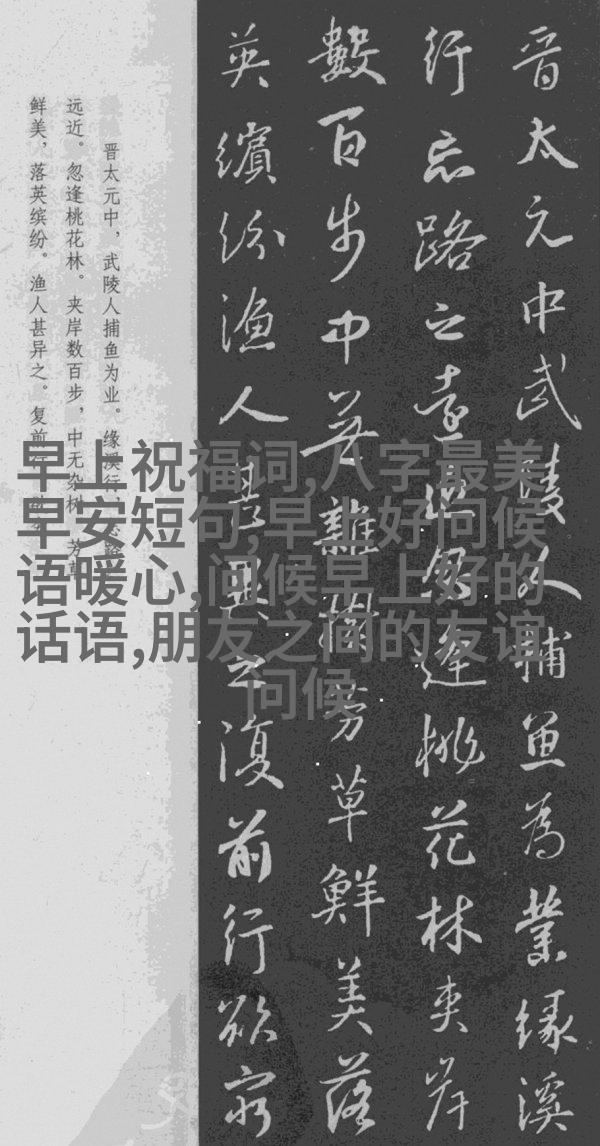 晋太元中武陵人捕魚為業緣溪
行忘路之遠近忽逢桃花林夹岸
數百步中无雜樹芳草鮮美落
英繽紛漁人甚異之復前行欲窮
晋太元中，武陵人捕鱼为业。缘溪行
远近。忽逢桃花林。夹岸数百步，中无杂树，芳草
鲜美，落英缤纷。渔人甚异之。复前
早上祝福词,八字最美
早安短句,早上好问候
语暖心,问候早上好的
话语,朋友之间的友谊
问候